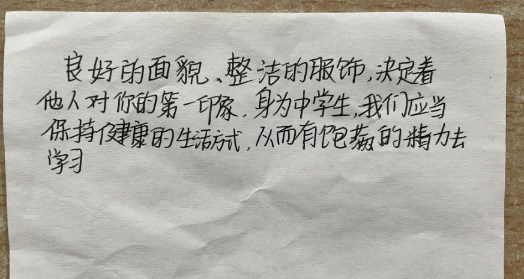 良好的面貌、整洁的服饰,决定着
他人对你的第一印象,身为中学生,我们应当
保持健康的生活方式,从而有饱满的精力去
学习